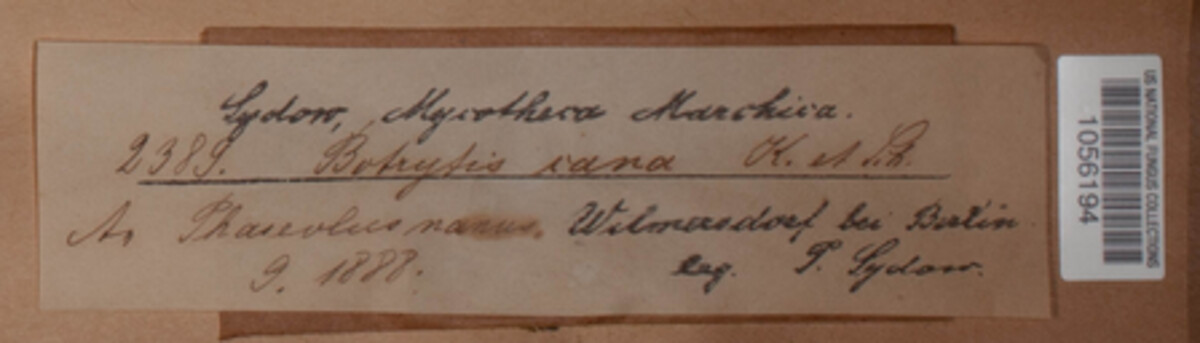 Sydow, Mycotheca Marchica.
2389. Botrytis cana K. et S.
An Phaseolus nanus. Wilmersdorf bei Berlin.
9. 1888. leg. P. Sydow.
US NATIONAL FUNGUS COLLECTIONS
1056194